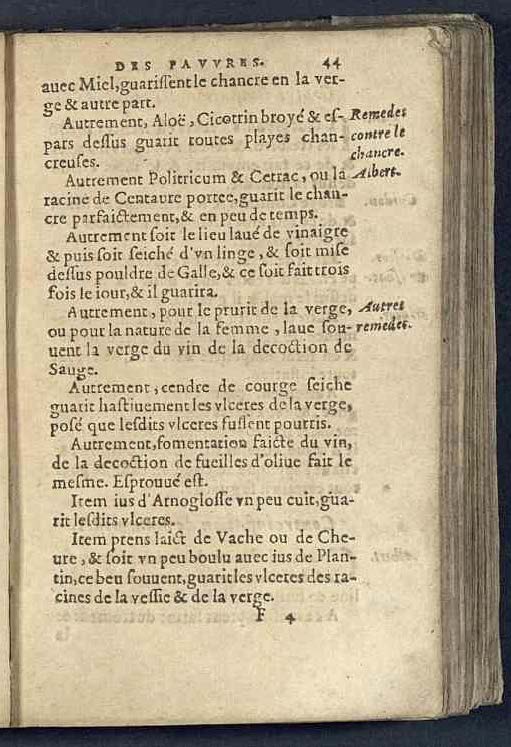 DES PAVVRES. 44
auec Miel,guariſſent le chancre en la ver-
ge & autre part.
Autrement, Aloë, Cicotrin broyé & eſ-
pars deſſus guarit toutes playes chan-
creuſes.
Remedes
contre le
chancre.
Autrement Politricum & Cetrac, ou la
Albert.
racine de Centaure portee,guarit le chan-
cre parfaictement,& en peu de temps.
Autrement ſoit le lieu laué de vinaigre
& puis ſoit ſeiché d'vn linge, & ſoit miſe
deſſus pouldre de Galle,& ce ſoit fait trois
fois le iour,& il guarira.
Autrement, pour le prurit de la verge,
ou pour la nature de la femme, laue ſou-
Autres
remedes.
uent la verge du vin de la decoction de
Sauge.
Autrement, cendre de courge ſeiche
guarit haſtiuement les vlceres de la verge,
poſé que leſdits vlceres fuſſent pourris.
Autrement,fomentation faicte du vin,
de la decoction de fueilles d'oliue fait le
meſme. Eſprouué eſt.
Item ius d'Arnogloſſe vn peu cuit,gua-
rit leſdits vlceres.
Item prens laict de Vache ou de Che-
ure, & ſoit vn peu boulu auec ius de Plan-
tin,ce beu ſouuent,guarit les vlceres des ra-
cines de la veſſie & de la verge.
F 4